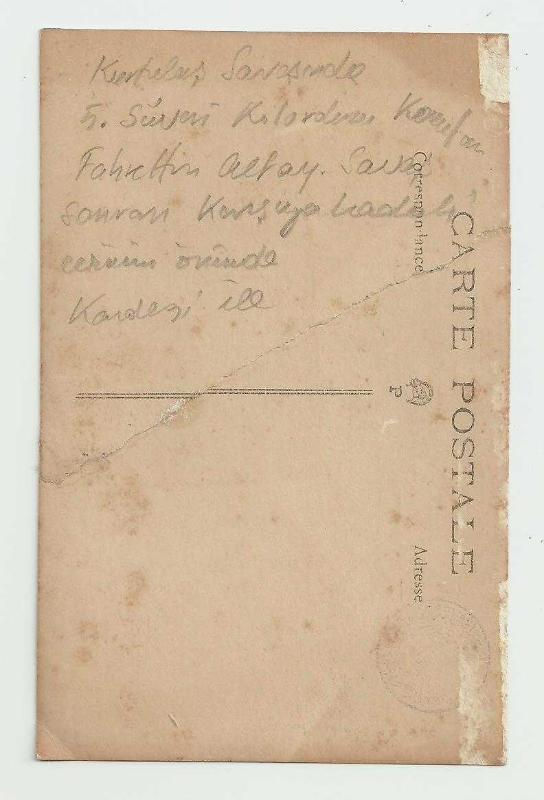 Kurtuluş Savaşında
5. Süvari Kolordusu Komutanı
Fahrettin Altay. Savaş
sonrası Karşıyakadaki
evinin önünde
Kardeşi ile
CARTE POSTALE
Correspondance
Adresse
P